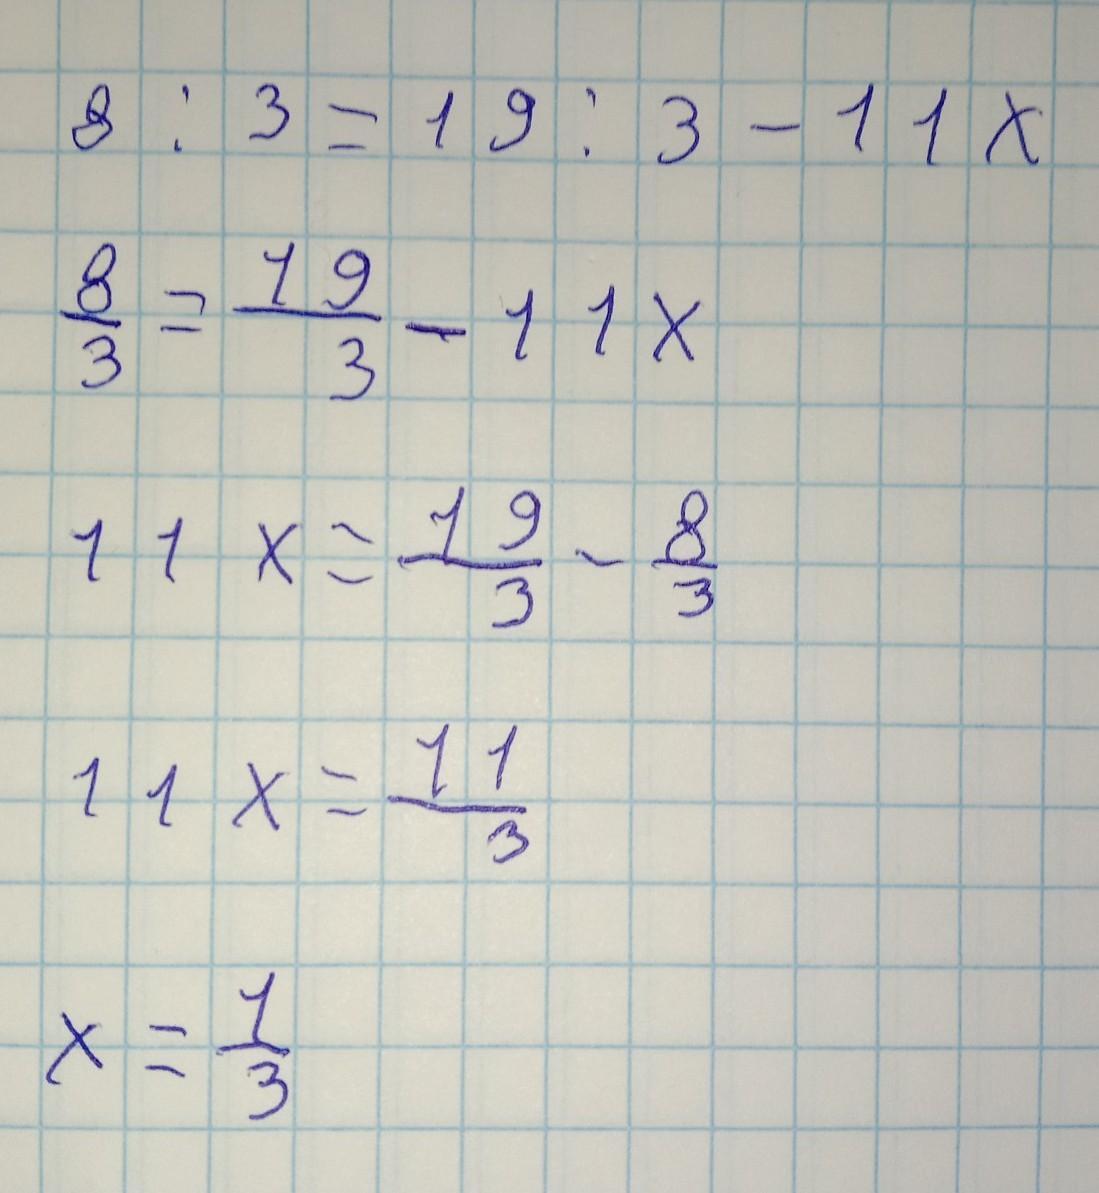 8 : 3 = 19 : 3 - 11x
8/3 = 19/3 - 11x
11x = 19/3 - 8/3
11x = 11/3
x = 1/3